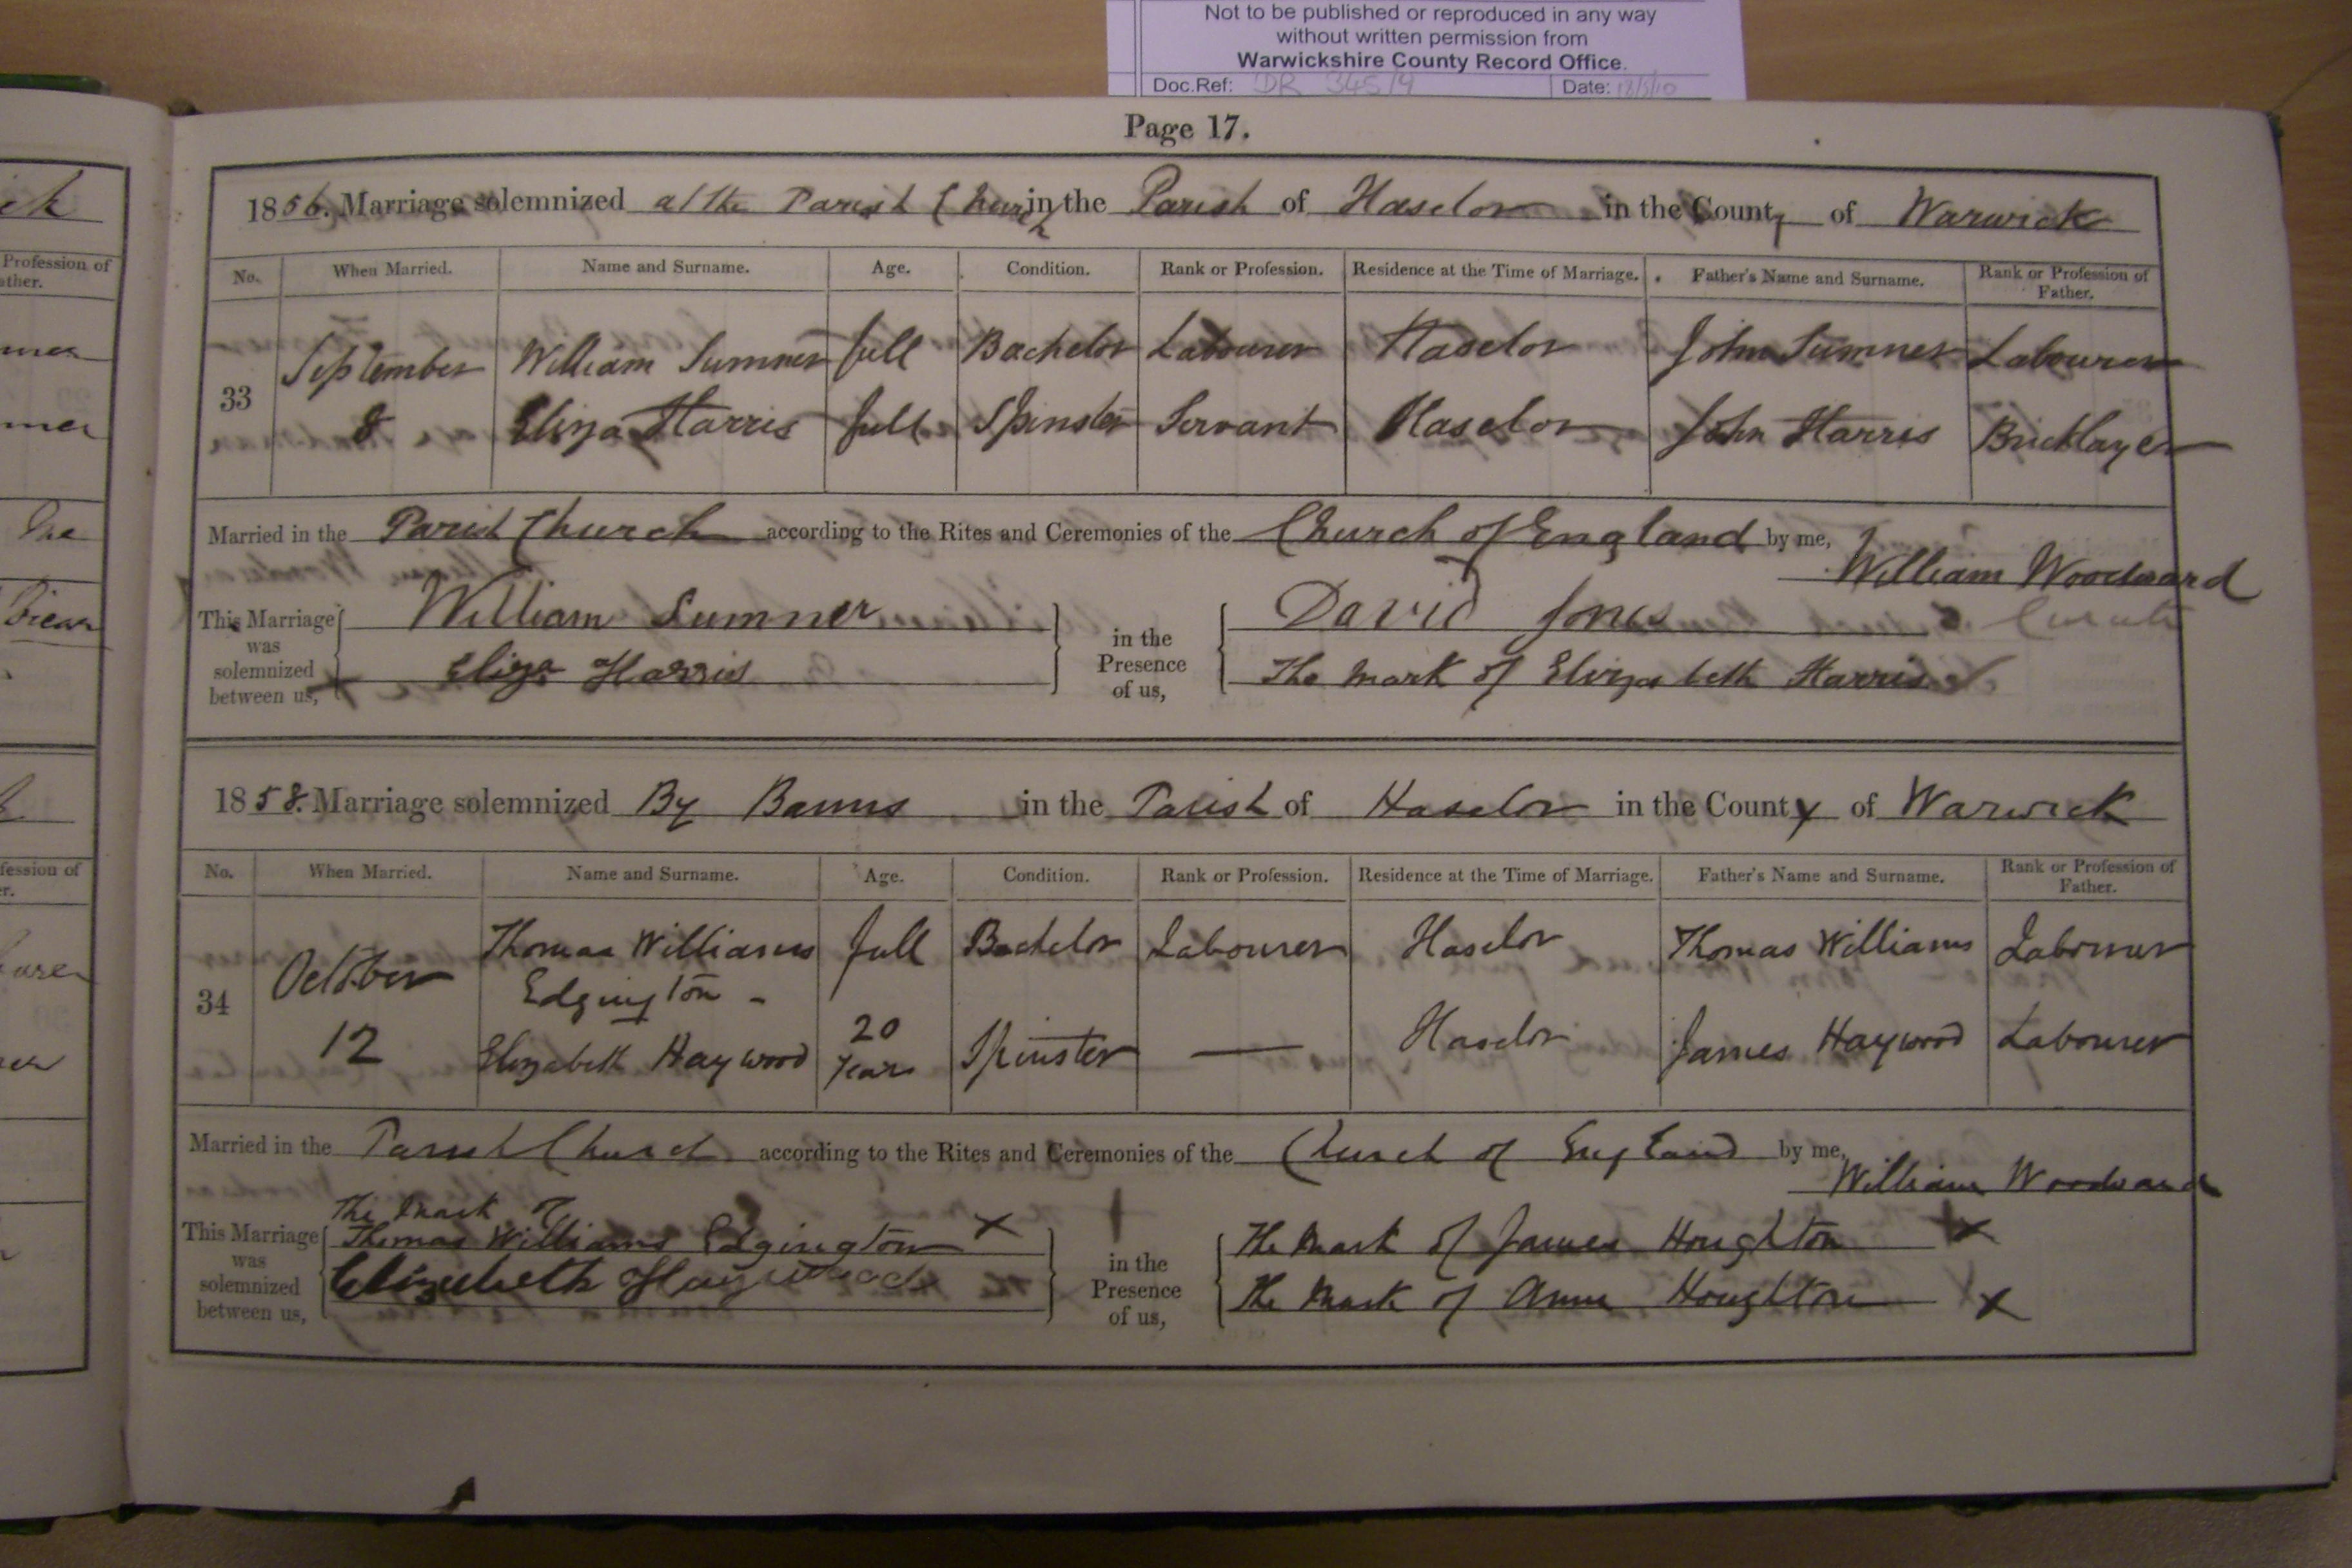 Not to be published or reproduced in any way
without written permission from
Warwickshire County Record Office.
Doc.Ref: DR 345/9 Date: 18/5/10
Page 17.
1856. Marriage solemnized at the Parish Church in the Parish of Haselor in the County of Warwick
No. When Married. Name and Surname. Age. Condition. Rank or Profession. Residence at the Time of Marriage. Father's Name and Surname. Rank or Profession of Father.
33 September 8 William Sumner full Bachelor Labourer Haselor John Sumner Labourer
Eliza Harris full Spinster Servant Haselor John Harris Bricklayer
Married in the Parish Church according to the Rites and Ceremonies of the Church of England by me,
William Woodward
Curate
This Marriage was solemnized between us, William Sumner
x Eliza Harris
in the Presence of us, David Jones
The mark of Elizabeth Harris
1858. Marriage solemnized By Banns in the Parish of Haselor in the County of Warwick
No. When Married. Name and Surname. Age. Condition. Rank or Profession. Residence at the Time of Marriage. Father's Name and Surname. Rank or Profession of Father.
34 October 12 Thomas Williams Edgington - full Bachelor Labourer Haselor Thomas Williams Labourer
Elizabeth Haywood 20 Years Spinster — Haselor James Haywood Labourer
Married in the Parish Church according to the Rites and Ceremonies of the Church of England by me,
William Woodward
This Marriage was solemnized between us, The Mark of
Thomas Williams Edgington x
Elizabeth Haywood
in the Presence of us, The Mark of James Houghton x
The Mark of Anne Houghton x
ick
Profession of
ather.
mer
The
Vicar
fession of
er.